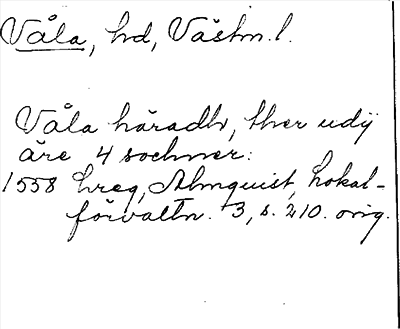 Våla, hd, Västm. l.
Våla häradh, ther udij
äre 4 sochner:
1558 hreg, Almquist, Lokal-
förvaltn. 3, s. 210. orig.